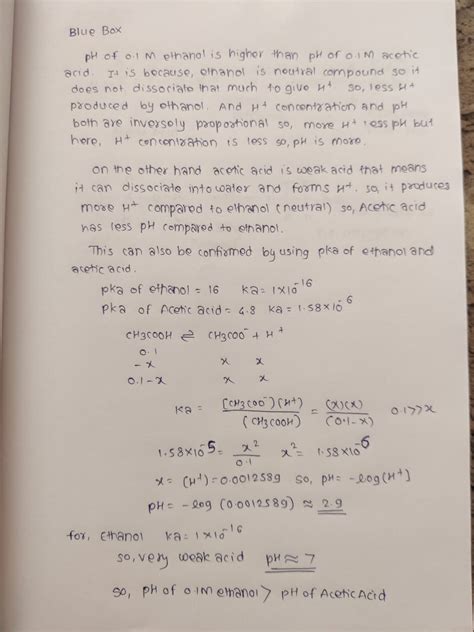 Blue Box
pH of 0.1 M ethanol is higher than pH of 0.1M acetic
acid. It is because, ethanol is neutral compound so it
does not dissociate that much to give H+ so, less H+
produced by ethanol. And H+ concentration and pH
both are inversely proportional so, more H+ less pH but
here, H+ concentration is less so, pH is more.
on the other hand acetic acid is weak acid that means
it can dissociate into water and forms H+. so, it produces
more H+ compared to ethanol (neutral) so, Acetic acid
has less pH compared to ethanol.
This can also be confirmed by using pka of ethanol and
acetic acid.
pka of ethanol = 16 ka = 1×10^-16
Pka of Acetic acid = 4.8 ka = 1.58×10^-6
CH3COOH ⇌ CH3COO⁻ + H+
0.1
-x x x
0.1-x x x
ka = [CH3COO⁻](H+) / (CH3COOH) = (x)(x) / (0.1-x) 0.1>>x
1.58×10^-5 = x²/0.1 x² = 1.58×10^-6
x = (H+) = 0.0012589 so, pH = -log[H+]
pH = -log (0.0012589) ≈ 2.9
for, Ethanol ka = 1×10^-16
so, very weak acid pH ≈ 7
so, pH of 0.1M ethanol > pH of Acetic Acid